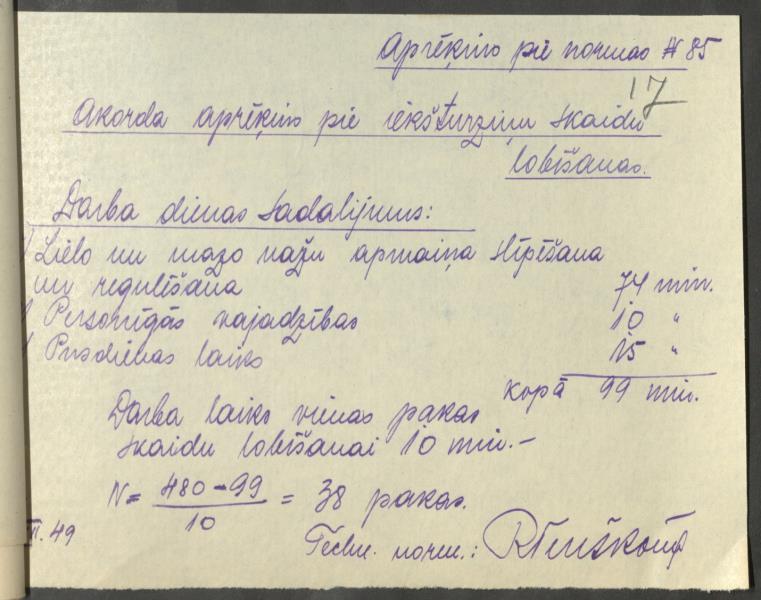 Aprēķins pie normas # 85
17
Akorda aprēķins pie iekšturziņu skaidu
lobīšanas.
Darba dienas sadalījums:
) Lielo un mazo nažu apmaiņa slīpēšana
un regulēšana 74 min.
) Personīgās vajadzības 10 "
) Pusdienas laiks 15 "
Kopā 99 min.
Darba laiks vienas pakas
skaidu lobīšanai 10 min. –
N = 480 – 99 / 10 = 38 pakas.
. 49
Techn. norm.: